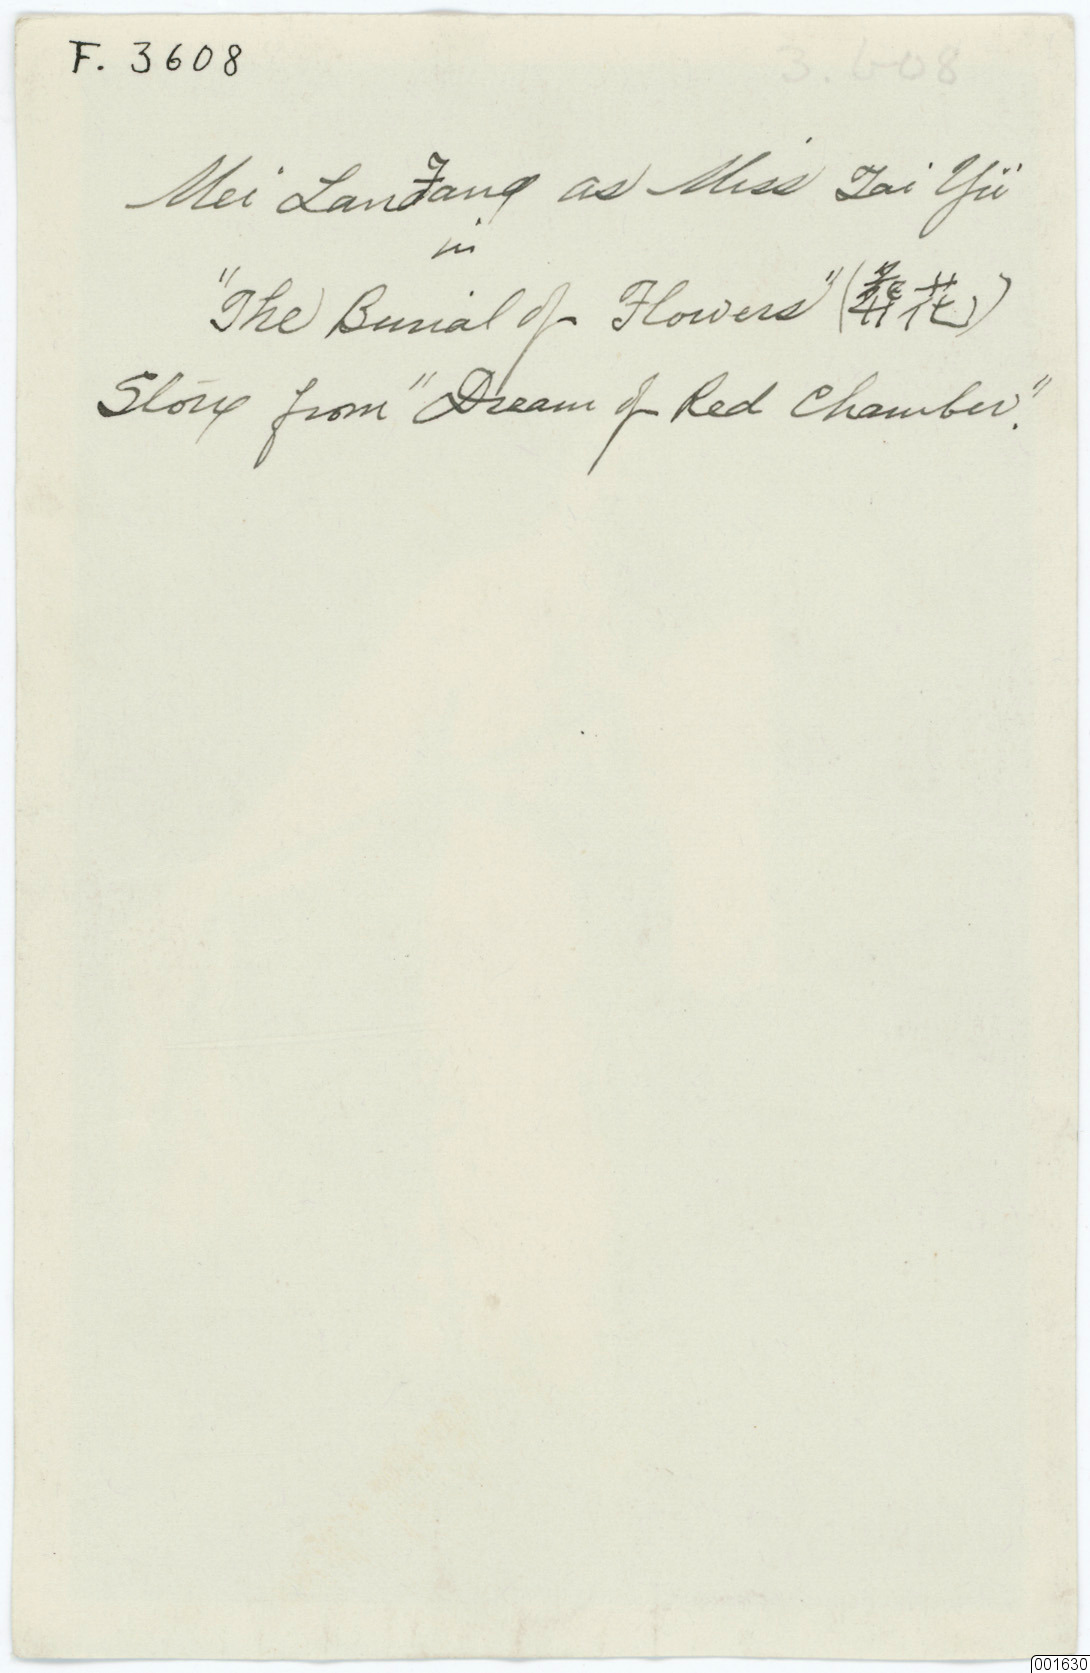 F. 3608
3.608
Mei Lan Fang as Miss Tai Yü
in
"The Burial of Flowers" (葬花)
Story from "Dream of Red Chamber."
001630